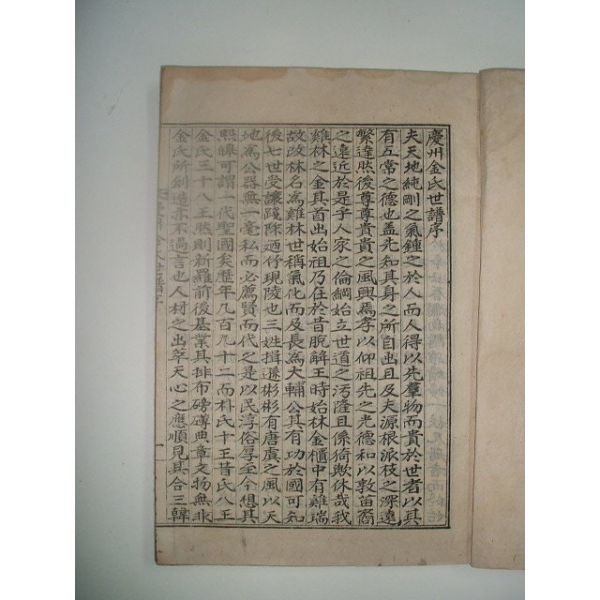 慶州金氏世譜序
夫天地純剛之氣鍾之於人而人得以先羣物而貴於世者以其
有五常之德也盖先知其身之所自出且及夫源根派枝之深遠
繁達然後尊尊貴貴之風興焉孝以仰祖先之光德和以敦苗裔
之遠近於是乎人家之倫綱始立世道之汚隆且係猗歟休哉我
雞林之金其首出始祖乃在於昔脫解王時始林金櫃中有雞瑞
故改林名爲雞林世稱氣化而及長爲大輔公其有功於國可知
後七世受讓踐阼廼作現陵也三姓揖遜彬彬有唐虞之風以天
地爲公器無一毫私而必薦賢而代之是以民淳俗厚至今想其
熙皥可謂一代聖國矣歷年九百九十二而朴氏十王昔氏八王
金氏三十八王然則新羅前後基業其排布磅礴典章文物無非
金氏所創造亦不過言也人材之出萃天心之應順見其合三韓